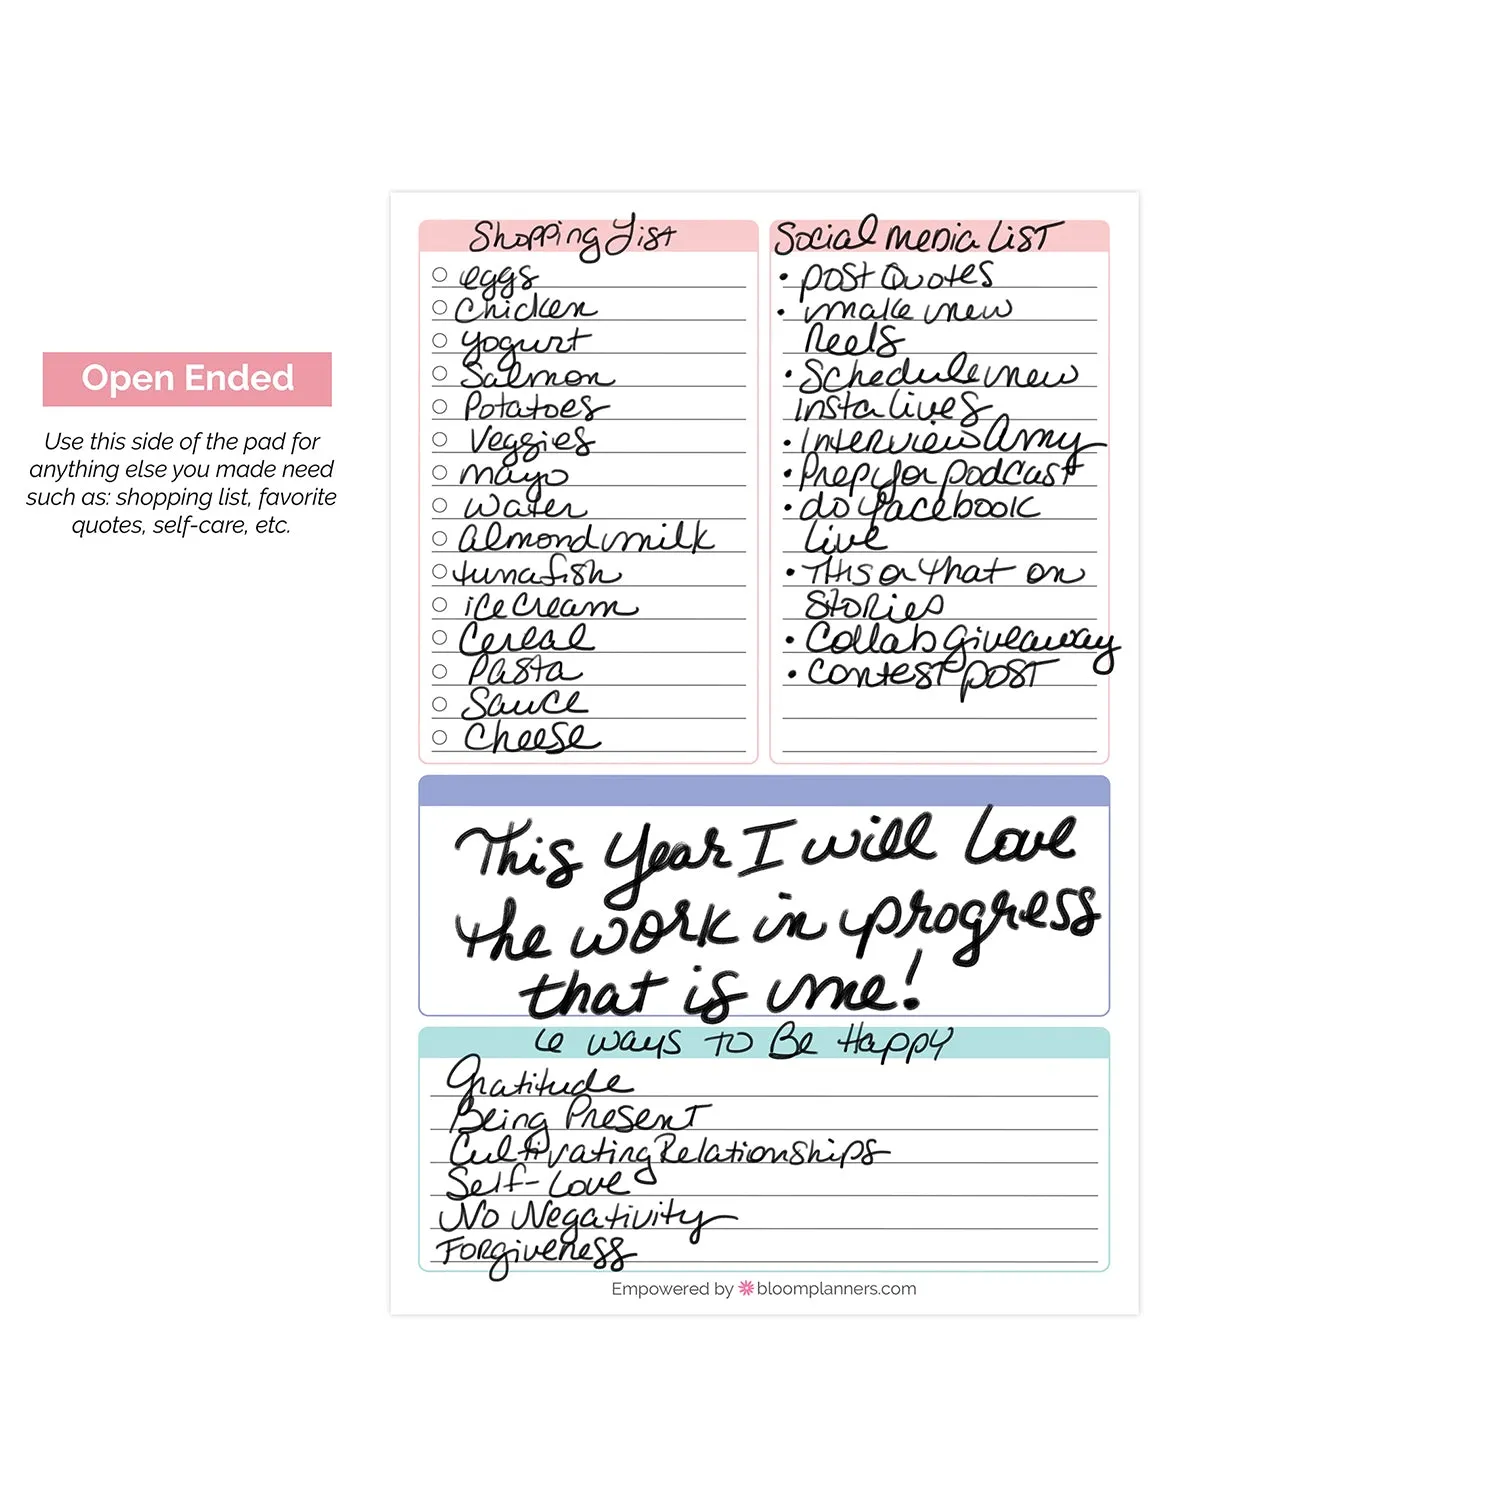 Open Ended
Use this side of the pad for
anything else you made need
such as: shopping list, favorite
quotes, self-care, etc.
Shopping List
eggs
Chicken
yogurt
Salmon
Potatoes
Veggies
mayo
water
almond milk
tunafish
ice cream
Cereal
Pasta
Sauce
Cheese
Social media List
• post Quotes
• make new
Reels
• Schedule new
insta lives
• Interview Amy
• Prep for podcast
• do facebook
live
• This or that on
Stories
• Collab giveaway
• contest post
This Year I will love
the work in progress
that is me!
6 ways to Be Happy
Gratitude
Being Present
Cultivating Relationships
Self-Love
No Negativity
Forgiveness
Empowered by bloomplanners.com